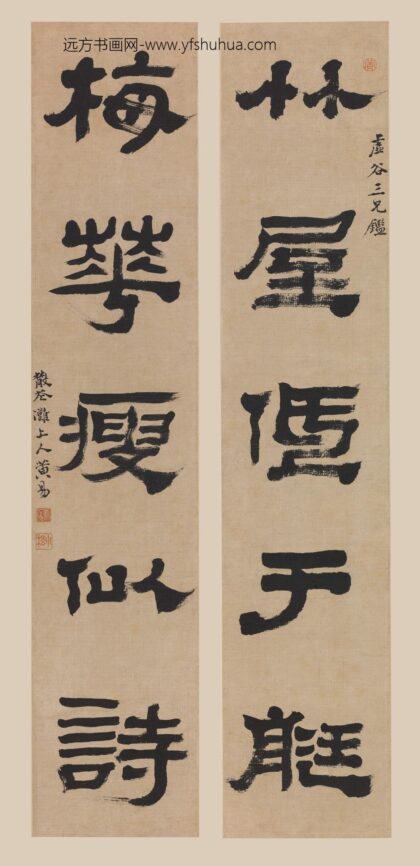 远方书画网-www.yfshuhua.com
竹屋低于艇
虛谷三兄鑑
梅華瘦似詩
散花灘上人黃易